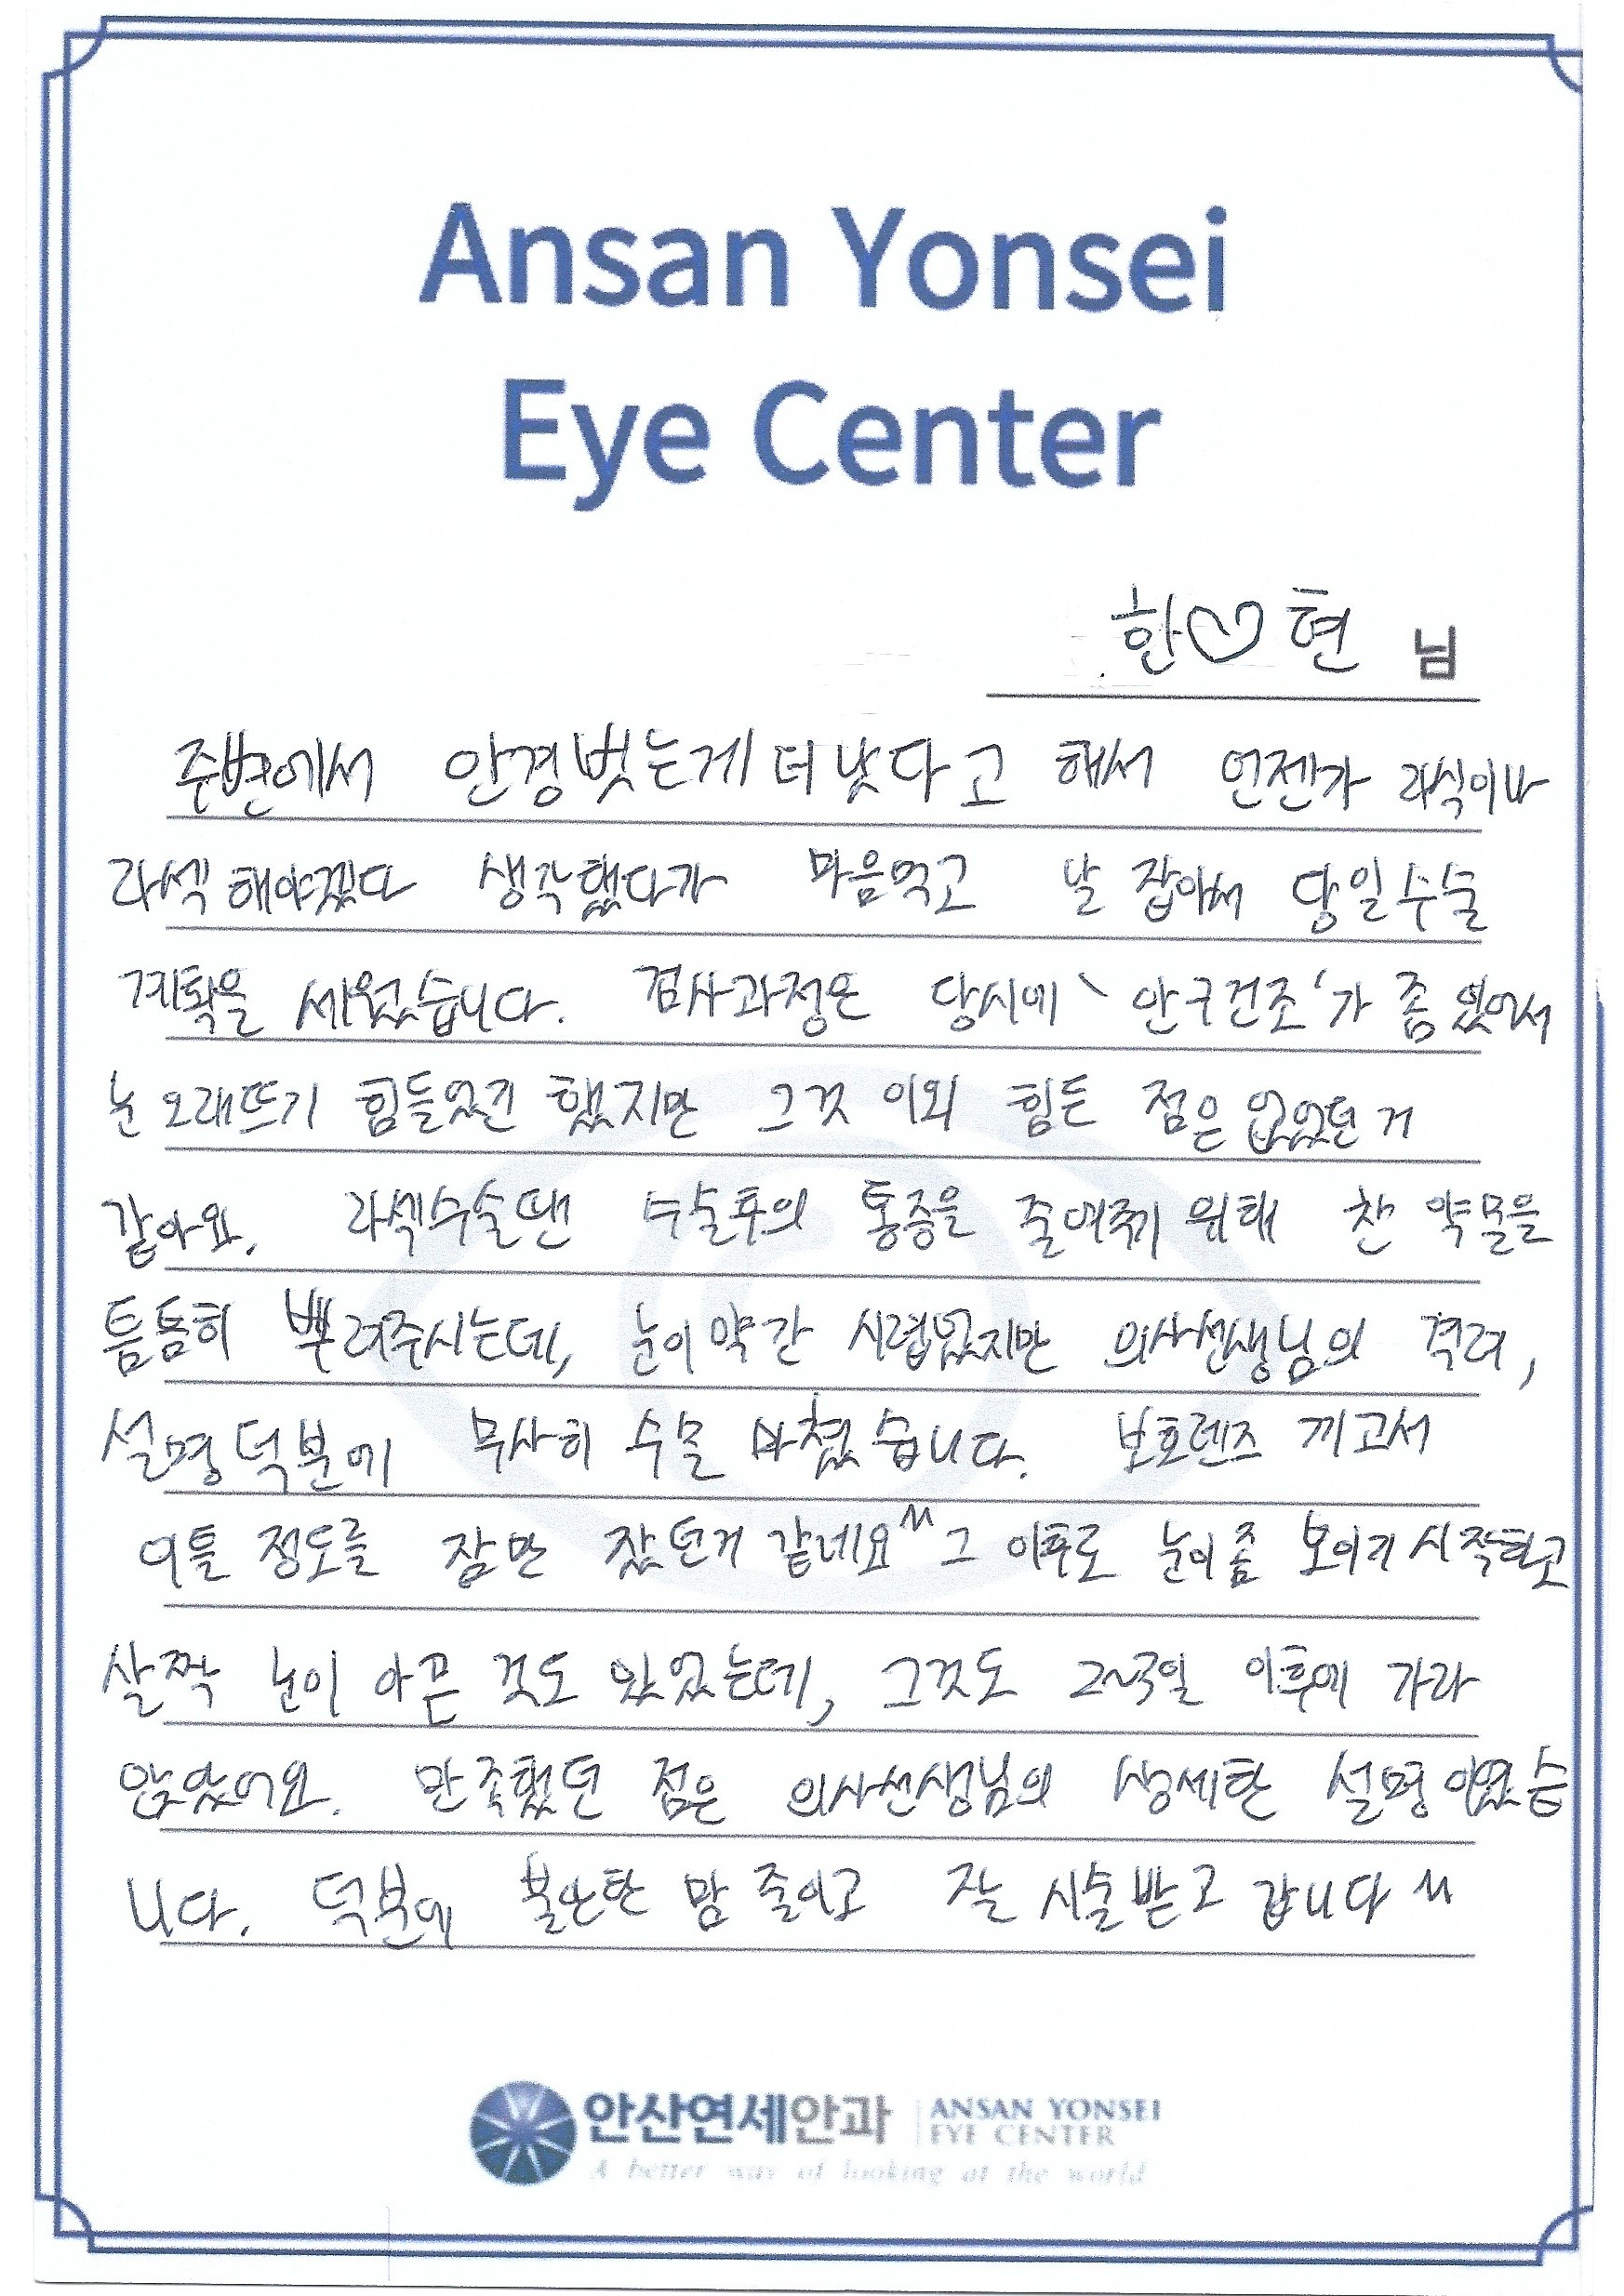 Ansan Yonsei
Eye Center
한♡현 님
주변에서 안경벗는게 더 낫다고 해서 언젠가 라식이나
라섹 해야겠다 생각했다가 마음먹고 날 잡아서 당일수술
계획을 세웠습니다. 검사과정은 당시에 '안구건조'가 좀 있어서
눈 오래뜨기 힘들었긴 했지만 그것 이외 힘든 점은 없었던 거
같아요. 라섹수술땐 수술후의 통증을 줄여주기 위해 찬 약물을
틈틈히 뿌려주시는데, 눈이 약간 시렵었지만 의사선생님의 격려,
설명 덕분에 무사히 수술 마쳤습니다. 보호렌즈 끼고서
이틀 정도를 잠만 잤던거 같네요^^ 그 이후로 눈이 좀 보이기 시작하고
살짝 눈이 아픈 것도 있었는데, 그것도 2~3일 이후에 가라
앉았어요. 만족했던 점은 의사선생님의 상세한 설명이었습
니다. 덕분에 불안한 맘 줄이고 잘 시술받고 갑니다 ^^
안산연세안과 ANSAN YONSEI
EYE CENTER
A better way of looking at the world